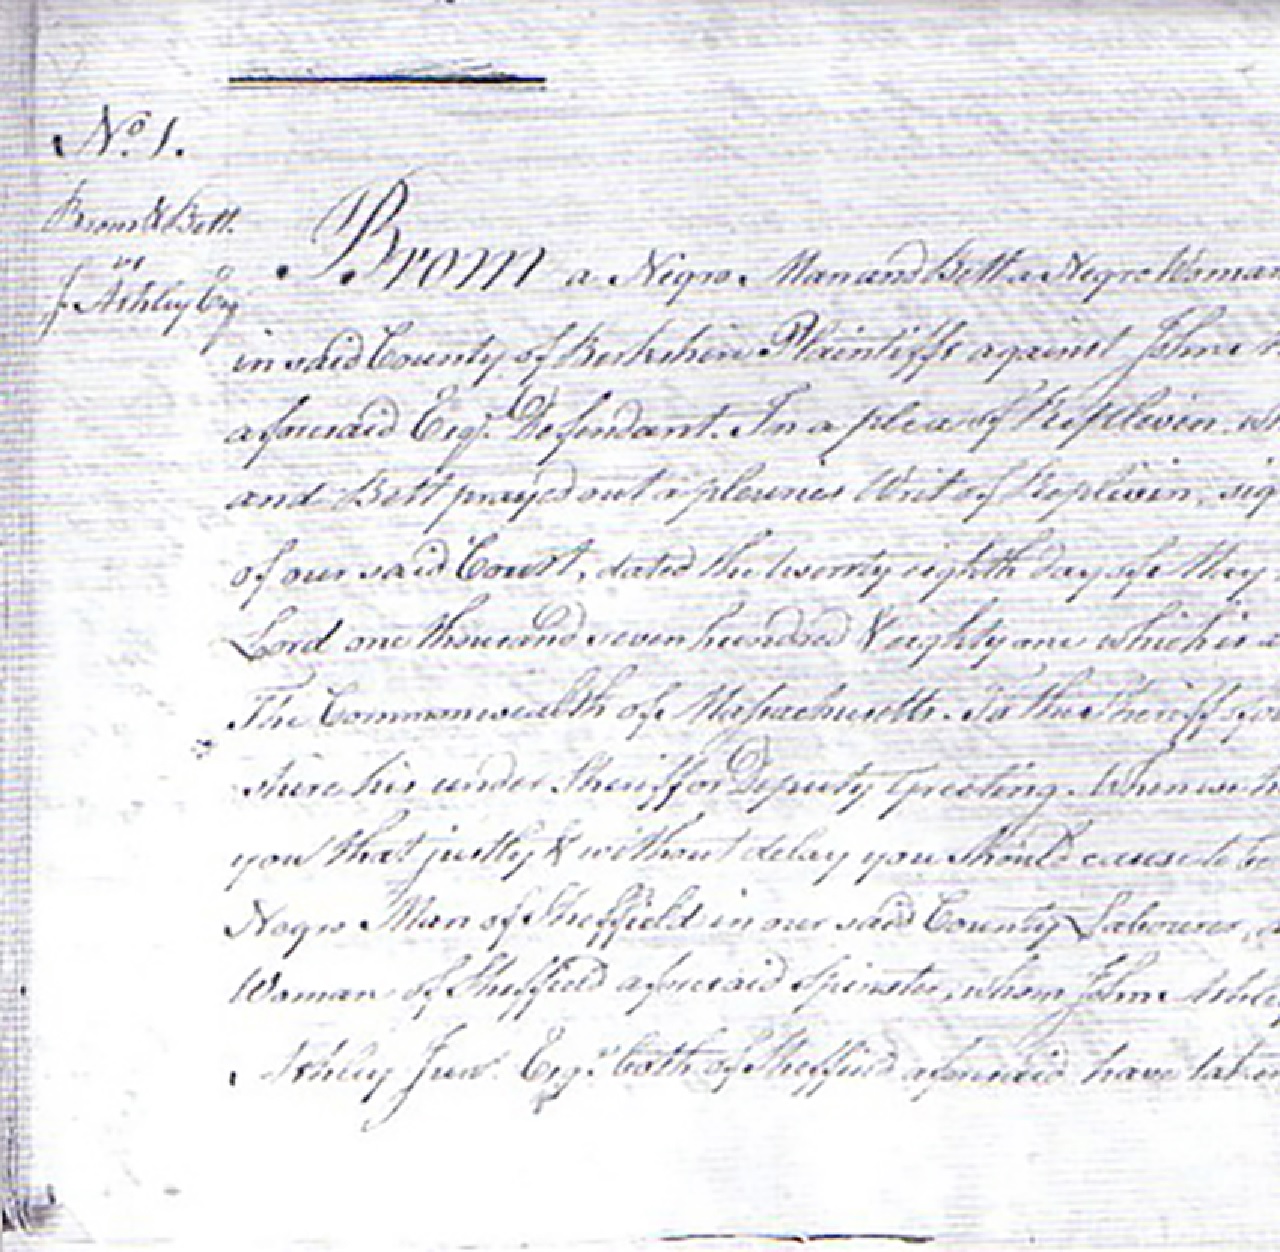 No. 1.
Brom & Bett
vs
J Ashley Esq
Brom a Negro Man and Bett a Negro Woman
in said County of Berkshire Plaintiffs against John
aforesaid Esqr. Defendant. In a plea of Replevin
and Bett prayed out a pluries Writ of Replevin, sig
of our said Court, dated the twenty eighth day of May
Lord one thousand seven hundred & eighty one which is
The Commonwealth of Massachusetts. To the Sheriff of
shire his under Sheriff or Deputy Greeting. When we
you that justly & without delay you should cause to be
Negro Man of Sheffield in our said County Labourer,
Woman of Sheffield aforesaid Spinster, whom John Ashley
Ashley Junr. Esqr. both of Sheffield aforesaid have taken